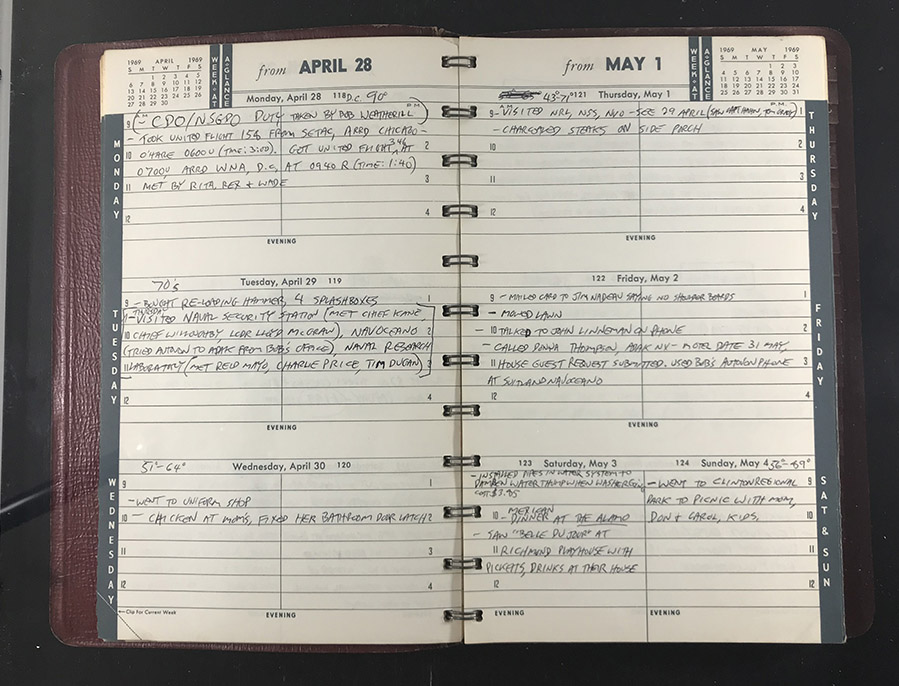 1969 APRIL 1969
S M T W T F S
1 2 3 4 5
6 7 8 9 10 11 12
13 14 15 16 17 18 19
20 21 22 23 24 25 26
27 28 29 30
WEEK·AT
A·GLANCE
from APRIL 28
Monday, April 28 118 D.C. 90°
A.M. P.M.
9 - CDO/NSGDO DUTY TAKEN BY DOD WEATHERILL
- TOOK UNITED FLIGHT 156 FROM SETAC, ARRD CHICAGO -
10 O'HARE 0600U (TIME: 3:00). GOT UNITED FLIGHT 346 AT 2
0700U, ARRD WNA, D.C. AT 0940 R (TIME: 1:40)
11 MET BY RITA, BEZ + WADE 3
12 4
EVENING
MONDAY
70's
Tuesday, April 29 119
9 - BOUGHT RE-LOADING HAMMER, 4 SPLASHBOXES 1
THURSDAY
- VISITED NAVAL SECURITY STATION (MET CHIEF KANE,
10 CHIEF WILLOUGHBY, LCDR LLOYD MCGRAW), NAVOCEANO 2
(TRIED AUTOVON TO ADAK FROM BOB'S OFFICE), NAVAL RESEARCH
11 LABORATORY (MET REID MAYO, CHARLIE PRICE, TIM DUGAN) 3
12 4
EVENING
TUESDAY
51°-64°
Wednesday, April 30 120
9 1
- WENT TO UNIFORM SHOP
10 - CHICKEN AT MOMS, FIXED HER BATHROOM DOOR LATCH 2
11 3
12 4
EVENING
WEDNESDAY
←Clip For Current Week
from MAY 1
WEEK·AT
A·GLANCE
1969 MAY 1969
S M T W T F S
1 2 3
4 5 6 7 8 9 10
11 12 13 14 15 16 17
18 19 20 21 22 23 24
25 26 27 28 29 30 31
43°-71° 121 Thursday, May 1
A.M. P.M.
9 - VISITED NRL, NSS, NVO - SEE 29 APRIL (SAW CAPT 1
- CHARCOALED STEAKS ON SIDE PORCH
10 2
11 3
12 4
EVENING
THURSDAY
122 Friday, May 2
9 - MAILED CARD TO JIM NADEAU SAYING NO SHOULDER BOARDS 1
- MOWED LAWN
- 10 TALKED TO JOHN LINNEMAN ON PHONE 2
- CALLED DONNA THOMPSON, ADAK NV - MOTEL DATE 31 MAY,
11 HOUSE GUEST REQUEST SUBMITTED. USED BOB'S AUTOVON PHONE 3
AT SUITLAND NAVOCEANO
12 4
EVENING
FRIDAY
123 Saturday, May 3
- INSTALLED PIPES IN WATER SYSTEM TO
DAMPEN WATER THUMP WHEN WASHER GOING
COST $3.95
MEXICAN
10 - DINNER AT THE ALAMO
- SAW "BELLE DU JOUR" AT
11 RICHMOND PLAYHOUSE WITH
PICKETTS, DRINKS AT THEIR HOUSE
12
EVENING
124 Sunday, May 4 56°-89°
- WENT TO CLINTON REGIONAL 9
PARK TO PICNIC WITH MOM,
DON + CAROL, KIDS. 10
11
12
EVENING
SAT & SUN